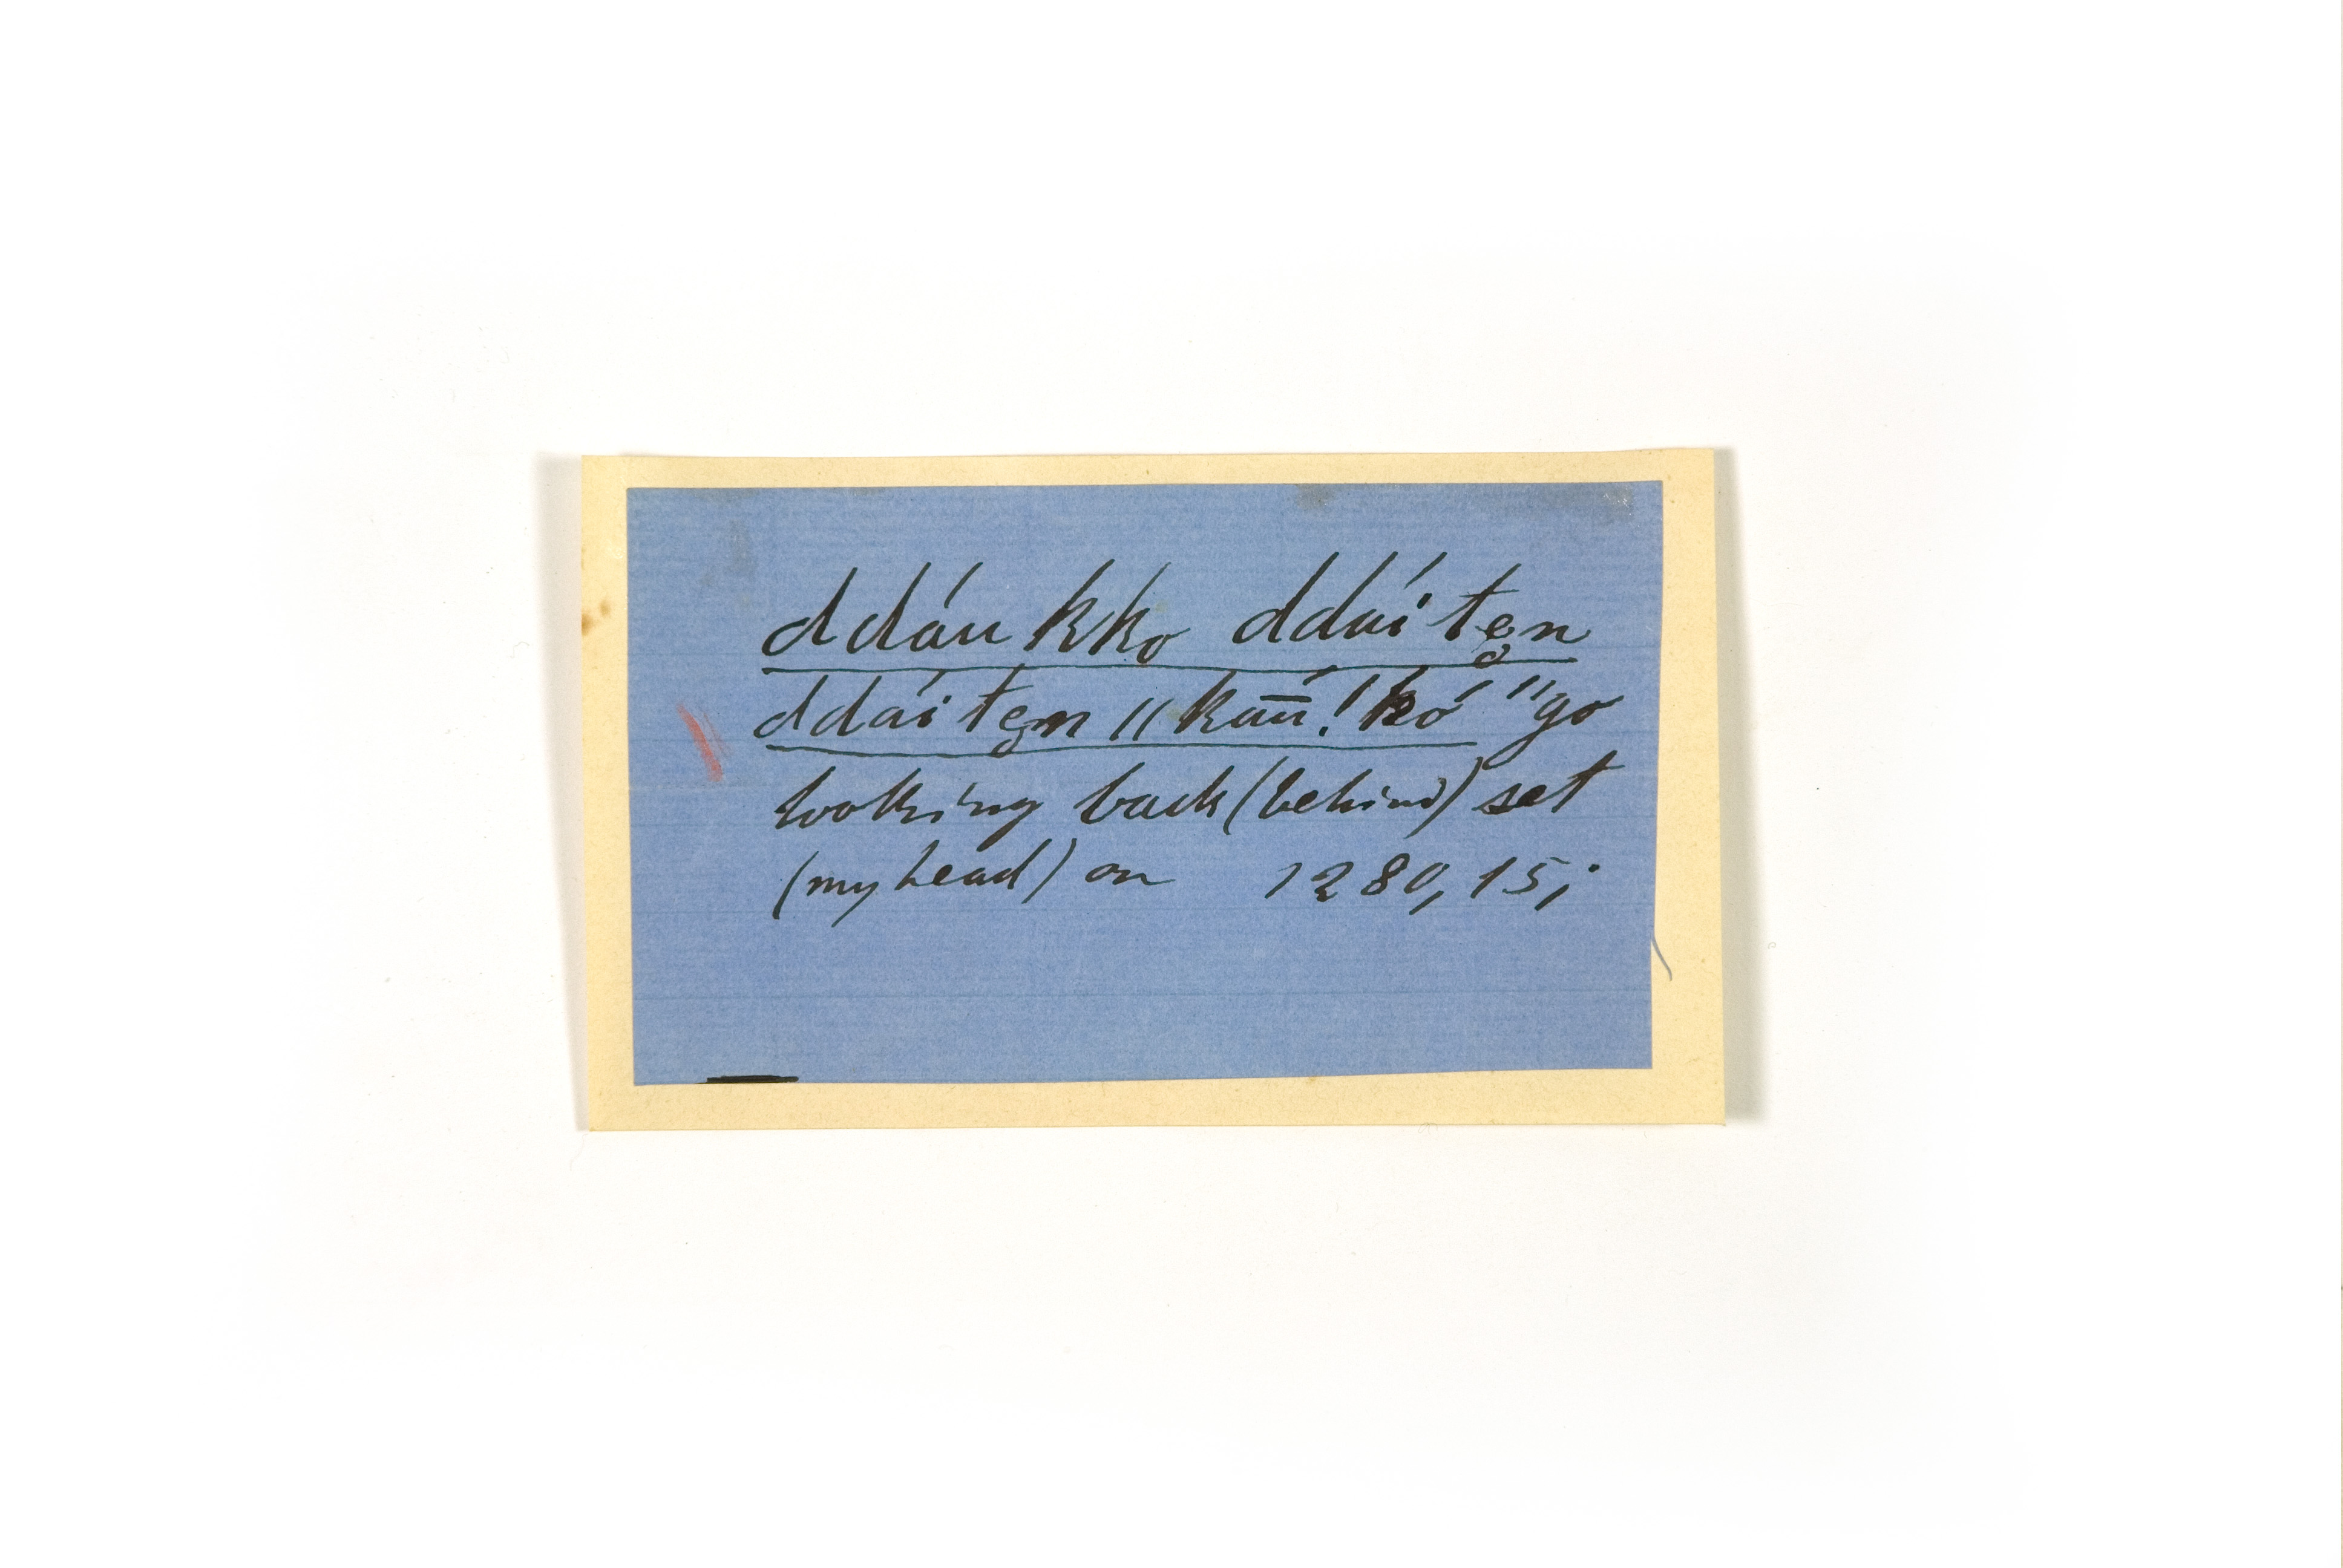 ddáu kko ddái te̥n
ddái te̥n ǁkau̅! kó "go
looking back (behind) set
(my head) on 1280, 15;